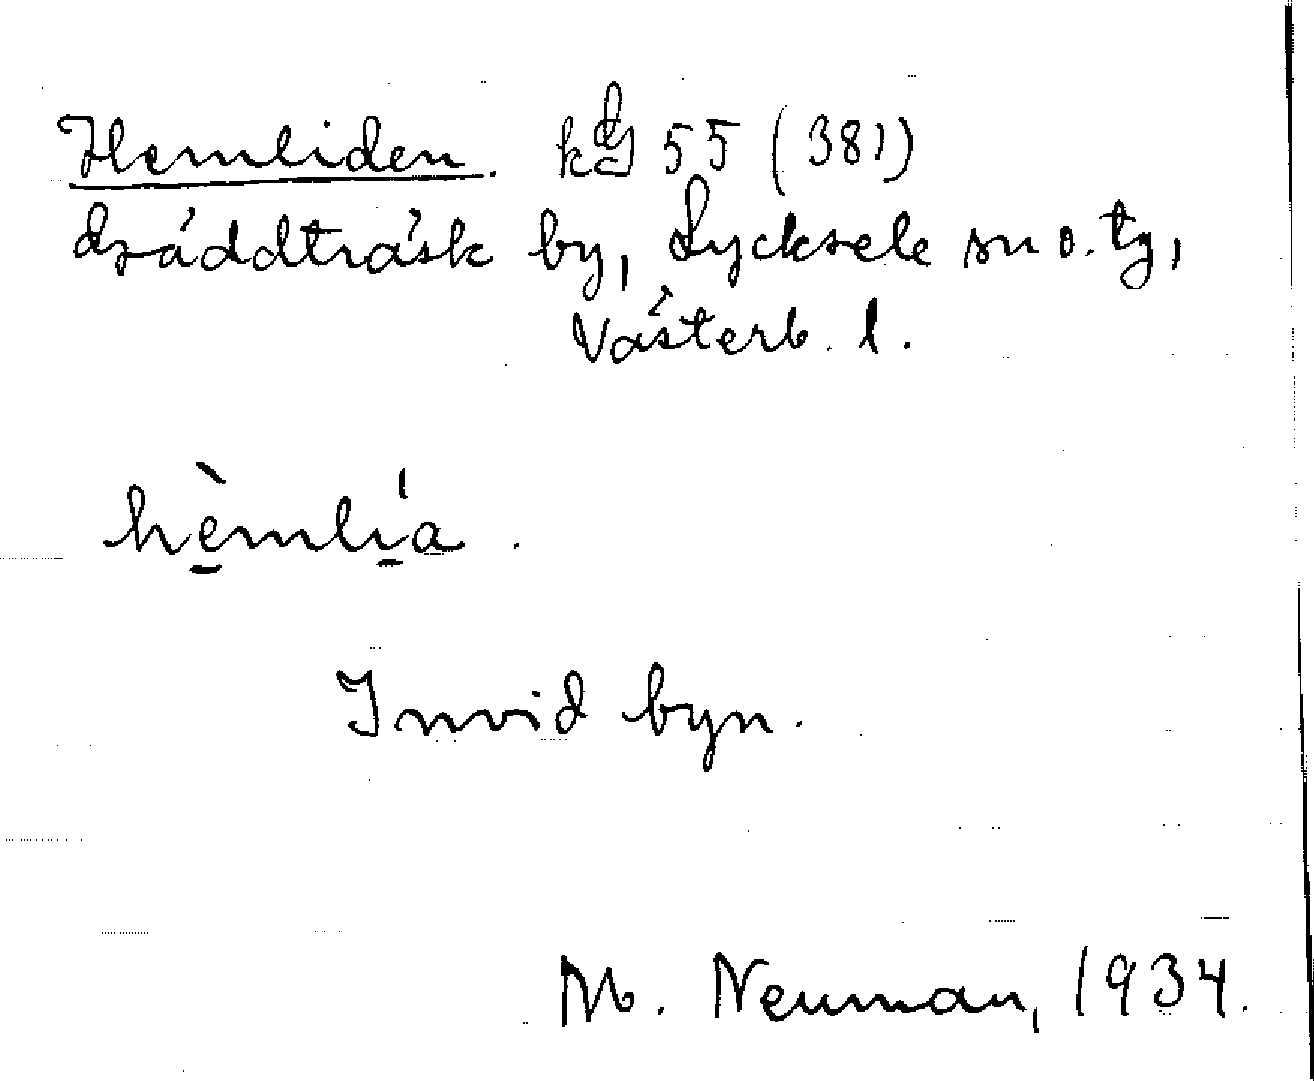 Hemliden. kg 55 (381)
Gräddträsk by, Lycksele sn o. tg,
Västerb. l.
hèmlía.
Invid byn.
M. Neuman, 1934.